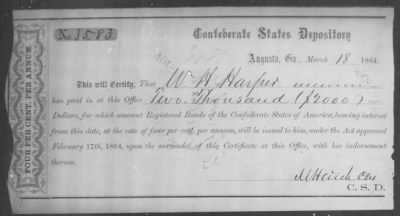 No. 3583
Confederate States Depository
Augusta, Ga., March 18 1864.
This will Certify, That W. H. Harper
has paid in at this Office Two Thousand ($2000)
Dollars, for which amount Registered Bonds of the Confederate States of America, bearing interest
from this date, at the rate of four per cent. per annum, will be issued to him, under the Act approved
February 17th, 1864, upon the surrender of this Certificate at this Office, with his indorsement
thereon.
C. S. D.
FOUR PER CENT. PER ANNUM.